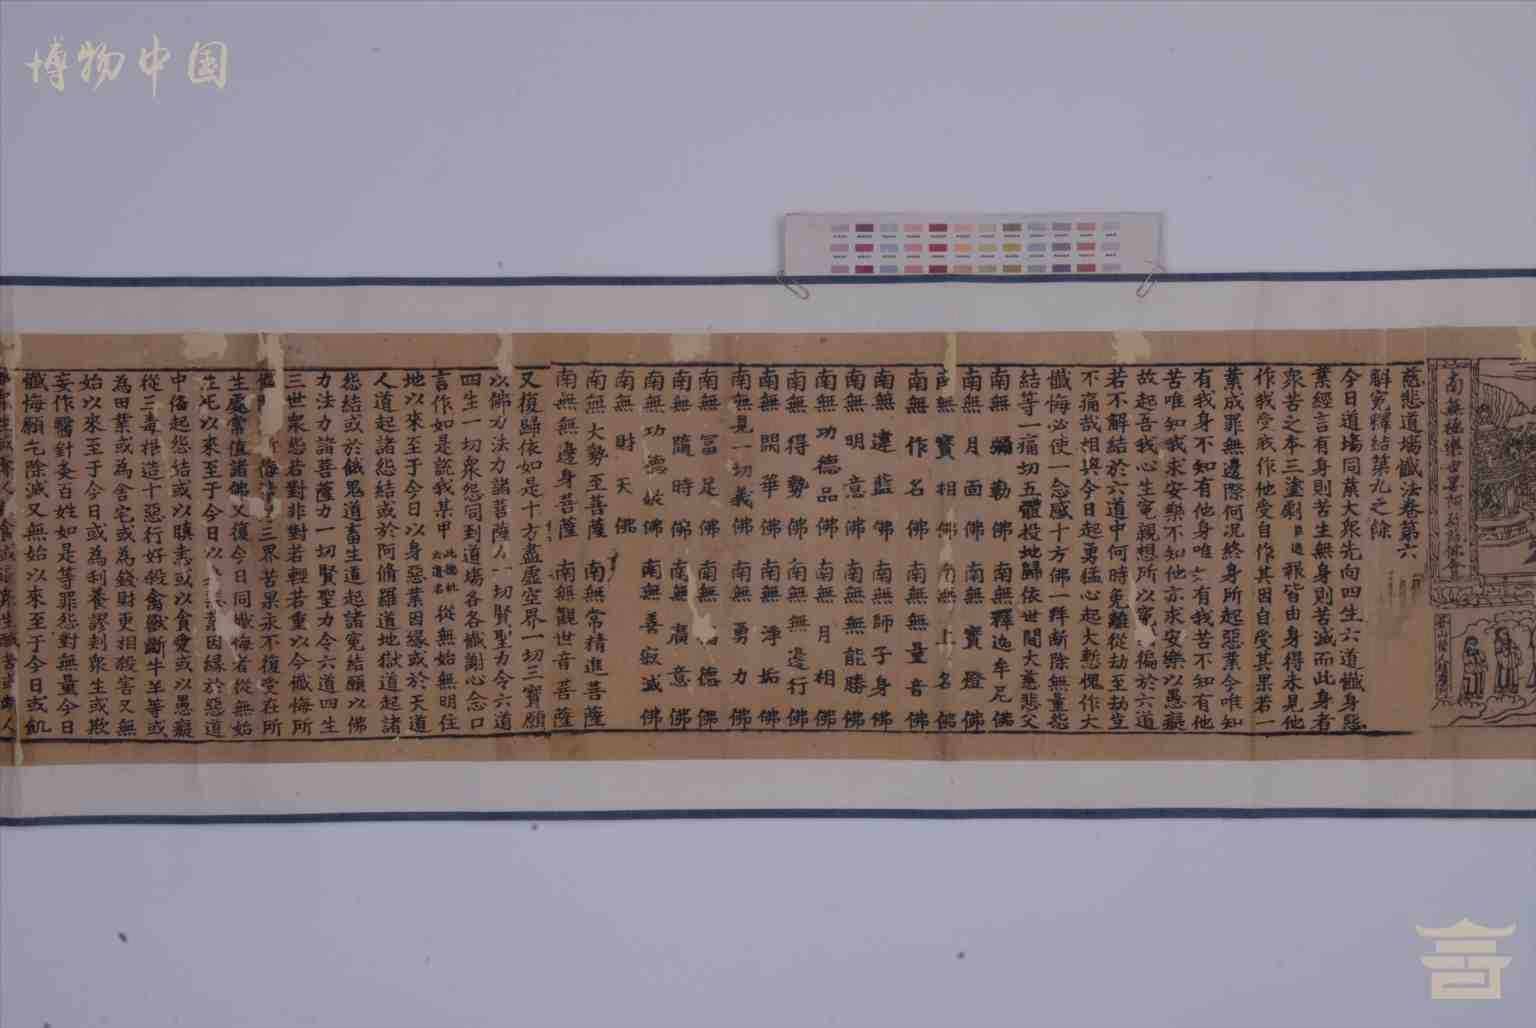 博物中国
南無極樂世界阿彌陀佛會
慈悲道場懺法卷第六
解冤釋結第九之餘
今日道場同業大衆先向四生六道懺身惡
業經言有身則苦生無身則苦滅而此身者
衆苦之本三塗劇報皆由身得未見他
作我受我作他受自作其因自受其果若一
業成罪無邊際何況終身所起惡業今唯知
有我身不知有他身唯知有我苦不知有他
苦唯知我求安樂不知他亦求安樂以愚癡
故起吾我心生冤親想所以冤徧於六道
若不解結於六道中何時免離從劫至劫豈
不痛哉相與今日起勇猛心起大慙愧作大
懺悔必使一念感十方佛一拜斷除無量怨
結等一痛切五體投地歸依世間大慈悲父
南無彌勒佛 南無釋迦牟尼佛
南無月面佛 南無寶燈佛
南無寶相佛 南無上名佛
南無作名佛 南無無量音佛
南無違藍佛 南無師子身佛
南無明意佛 南無無能勝佛
南無功德品佛 南無月相佛
南無得勢佛 南無無邊行佛
南無開華佛 南無淨垢佛
南無見一切義佛 南無勇力佛
南無富足佛 南無福德佛
南無隨時佛 南無廣意佛
南無功德敬佛 南無善寂滅佛
南無財天佛
南無大勢至菩薩 南無常精進菩薩
南無無邊身菩薩 南無觀世音菩薩
又復歸依如是十方盡虛空界一切三寶願
以佛力法力諸菩薩力一切賢聖力令六道
四生一切衆怨同到道場各各懺謝心念口
言作如是說我某甲 從無始無明住
地以來至于今日以身惡業因緣或於天道
人道起諸怨結或於阿脩羅道地獄道起諸
怨結或於餓鬼道畜生道起諸冤結願以佛
力法力諸菩薩力一切賢聖力令六道四生
三世衆怨若對非對若輕若重以今懺悔所
三界苦果永不復受在所
生處常值諸佛又復今日同懺悔者從無始
生死以來至于今日以因緣於惡道
中備起怨結或以瞋恚或以貪愛或以愚癡
從三毒根造十惡行好殺禽獸斷牛羊等或
為田業或為舍宅或為錢財更相殺害又無
始以來至于今日或為利養謬刲衆生或欺
妄作醫針灸百姓如是等罪怨對無量今日
懺悔願乞除滅又無始以來至于今日或飢